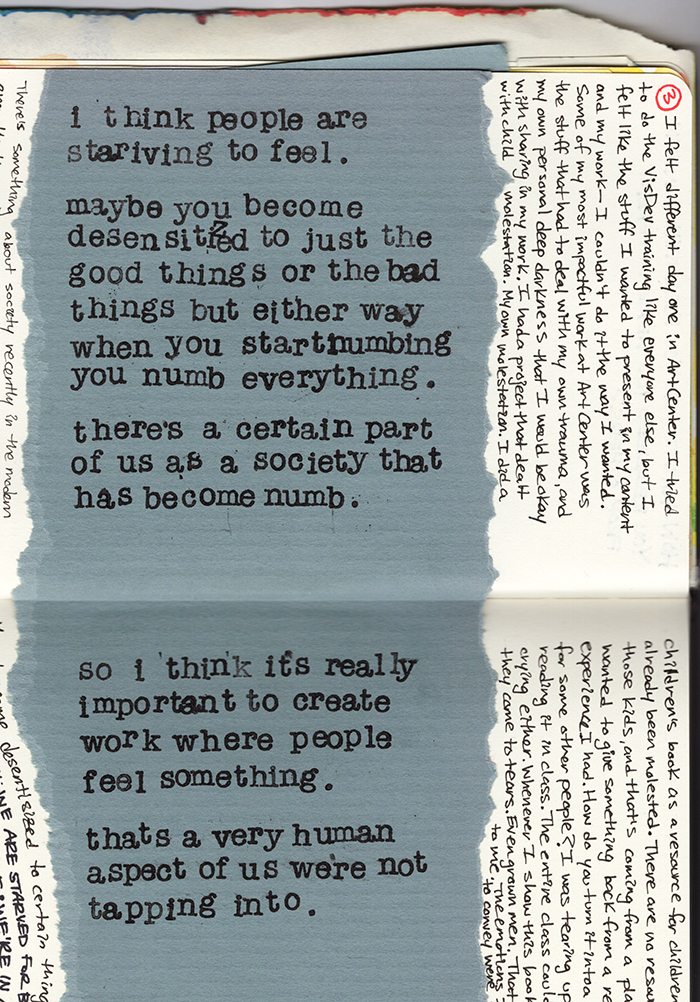 i think people are
stariving to feel.
maybe you become
desensitized to just the
good things or the bad
things but either way
when you start numbing
you numb everything.
there's a certain part
of us as a society that
has become numb.
so i think it's really
important to create
work where people
feel something.
thats a very human
aspect of us we're not
tapping into.
3 I felt different day one in ArtCenter. I tried
to do the VisDev training like everyone else, but I
felt like the stuff I wanted to present in my content
and my work— I couldn't do it the way I wanted.
Some of my most impactful work at ArtCenter was
the stuff that had to deal with my own trauma, and
my own personal deep darkness that I would be okay
with sharing in my work. I had a project that dealt
with child molestation. My own molestation. I did a
children's book as a resource for children
already been molested. There are no
those kids, and that's coming from a
wanted to give something back from a
experience I had. How do you turn it into a
for some other people? I was tearing up
reading it in class. The entire class
crying either. Whenever I show this book
they came to tears. Even grown men.
to me. The emotions
to convey were
There's something about society recently in the modern
desentisized to certain
WE ARE STARVED FOR
WE'RE IN